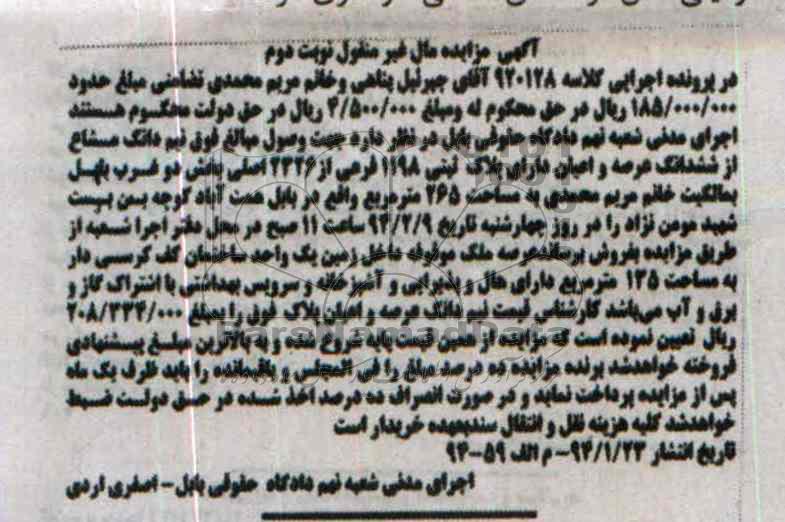 آگهی مزایده مال غیر منقول نوبت دوم
در پرونده اجرایی کلاسه ۹۲۰۱۲۸ آقای جبرئیل پناهی وخانم مریم محمدی تضامنی مبلغ حدود
۱۸۵/۰۰۰/۰۰۰ ریال در حق محکوم له ومبلغ ۴/۵۰۰/۰۰۰ ریال در حق دولت محکوم هستند
اجرای مدنی شعبه نهم دادگاه حقوقی بابل در نظر دارد جهت وصول مبالغ فوق نیم دانگ مشاع
از ششدانگ عرصه و اعیان دارای پلاک ثبتی ۱۱۹۸ فرعی از ۲۳۴۶ اصلی بخش دو غرب بابل
بمالکیت خانم مریم محمدی به مساحت ۲۶۵ مترمربع واقع در بابل همت آباد کوچه بن بست
شهید مومن نژاد را در روز چهارشنبه تاریخ ۹۴/۲/۹ ساعت ۱۱ صبح در محل دفتر اجرا شعبه از
طریق مزایده بفروش برساند عرصه ملک موقوفه داخل زمین یک واحد ساختمان کف کرسی دار
به مساحت ۱۳۵ مترمربع دارای هال و پذیرایی و آشپزخانه و سرویس بهداشتی با اشتراک گاز و
برق و آب می‌باشد کارشناس قیمت نیم دانگ عرصه و اعیان پلاک فوق را بمبلغ ۲۰۸/۳۳۴/۰۰۰
ریال تعیین نموده است که مزایده از همین قیمت پایه شروع شده و به بالاترین مبلغ پیشنهادی
فروخته خواهدشد برنده مزایده ده درصد مبلغ را فی المجلس و باقیمانده را باید ظرف یک ماه
پس از مزایده پرداخت نماید و در صورت انصراف ده درصد اخذ شده در حق دولت ضبط
خواهدشد کلیه هزینه نقل و انتقال سندبعهده خریدار است
تاریخ انتشار ۹۴/۱/۲۳- م الف ۵۹-۹۴
اجرای مدنی شعبه نهم دادگاه حقوقی بابل- اصغری اردی
ParsNamadData